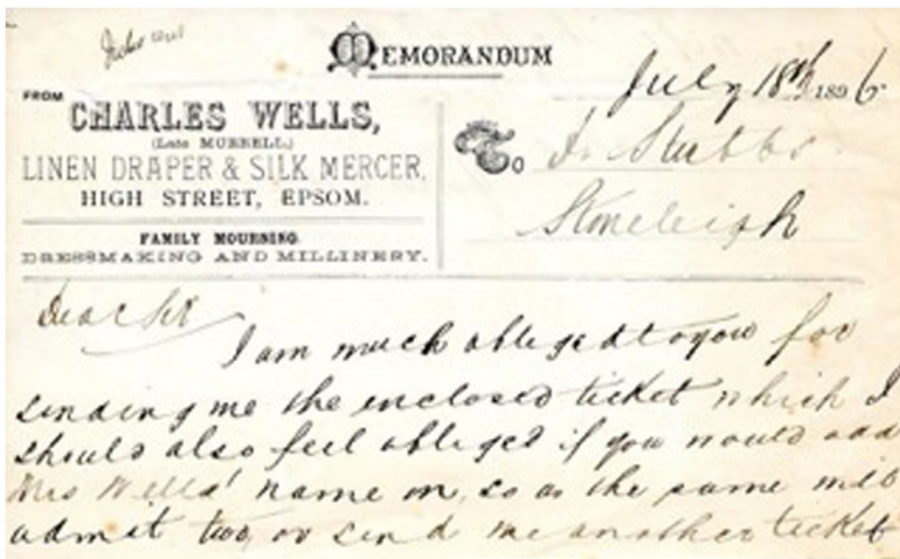 MEMORANDUM
July 18th 1896.
FROM
CHARLES WELLS,
(Late MURRELL,)
LINEN DRAPER & SILK MERCER,
HIGH STREET, EPSOM.
FAMILY MOURNING.
DRESSMAKING AND MILLINERY.
To
Stubbs
Stoneleigh
Dear Sir
I am much obliged to you for
sending me the enclosed ticket which I
should also feel obliged if you would add
Mrs Wells' name on, so as the same will
admit two, or send me another ticket